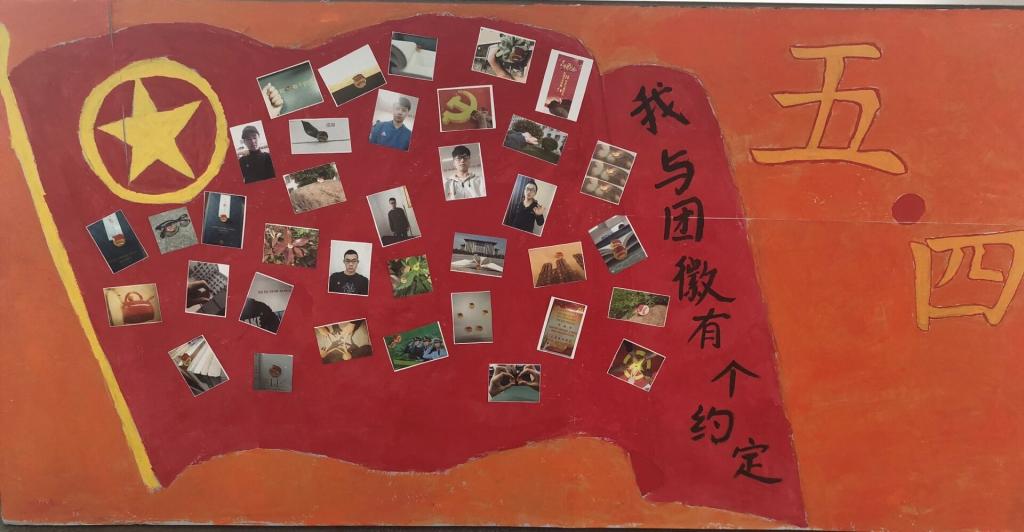 我与团徽有个约定
五·四